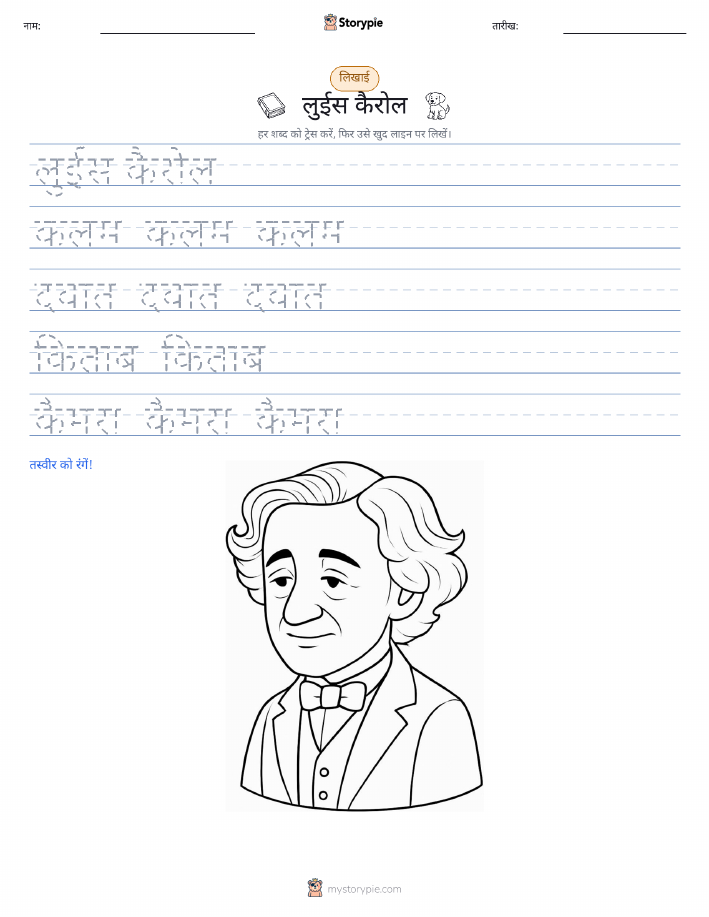 नाम:
Storypie
तारीख:
लिखाई
लुईस कैरोल
हर शब्द को ट्रेस करें, फिर उसे खुद लाइन पर लिखें।
लुईस कैरोल
कलम कलम कलम
दवात दवात दवात
किताब किताब
कैमरा कैमरा कैमरा
तस्वीर को रंगें!
mystorypie.com